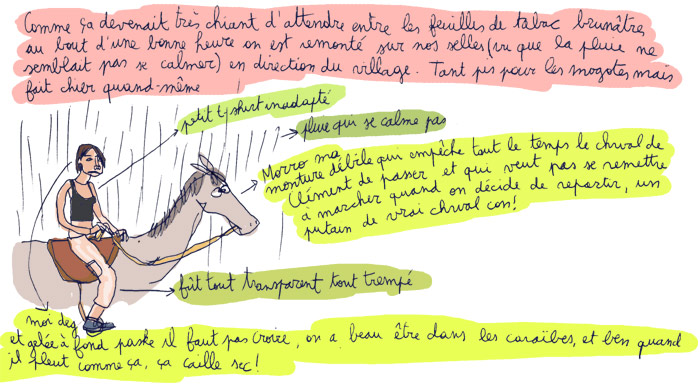 Comme ça devenait très chiant d'attendre entre les feuilles de tabac brunâtres
au bout d'une bonne heure on est remonté sur nos selles (vu que la pluie ne
semblait pas se calmer) en direction du village. Tant pis pour les mogotes mais
fait chier quand-même
petit t-shirt inadapté
pluie qui se calme pas
Morro ma
monture débile qui empêche tout le temps le chval de
Clément de passer et qui veut pas se remettre
à marcher quand on décide de repartir, un
putain de vrai chval con!
fût tout transparent tout trempé
moi deg
et gelée à fond paske il faut pas croire, on a beau être dans les caraïbes, et ben quand
il pleut comme ça, ça caille sec!